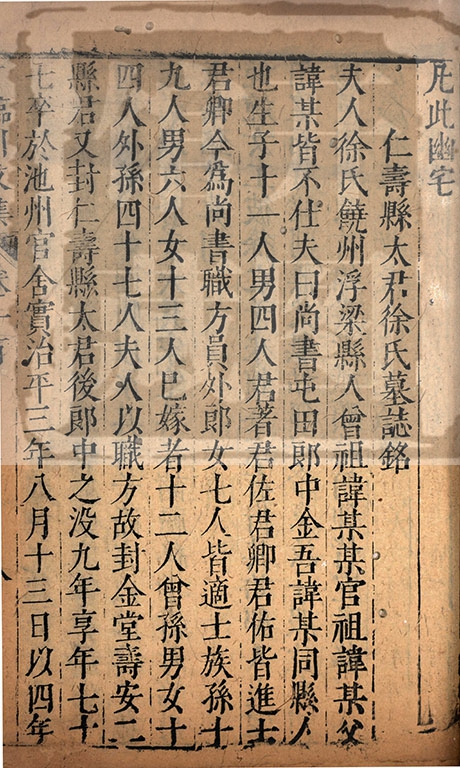 凡此幽宅
仁壽縣太君徐氏墓誌銘
夫人徐氏饒州浮梁縣人曾祖諱某某官祖諱某父
諱某皆不仕夫曰尚書屯田郎中金吾諱某同縣人
也生子十一人男四人君著君佐君卿君佑皆進士
君卿今為尚書職方員外郎女七人皆適士族孫十
九人男六人女十三人已嫁者十二人曾孫男女十
四人外孫四十七人夫人以職方故封金堂壽安二
縣君又封仁壽縣太君後郎中之没九年享年七十
七卒於池州官舍實治平三年八月十三日以四年
臨川文集 卷一百